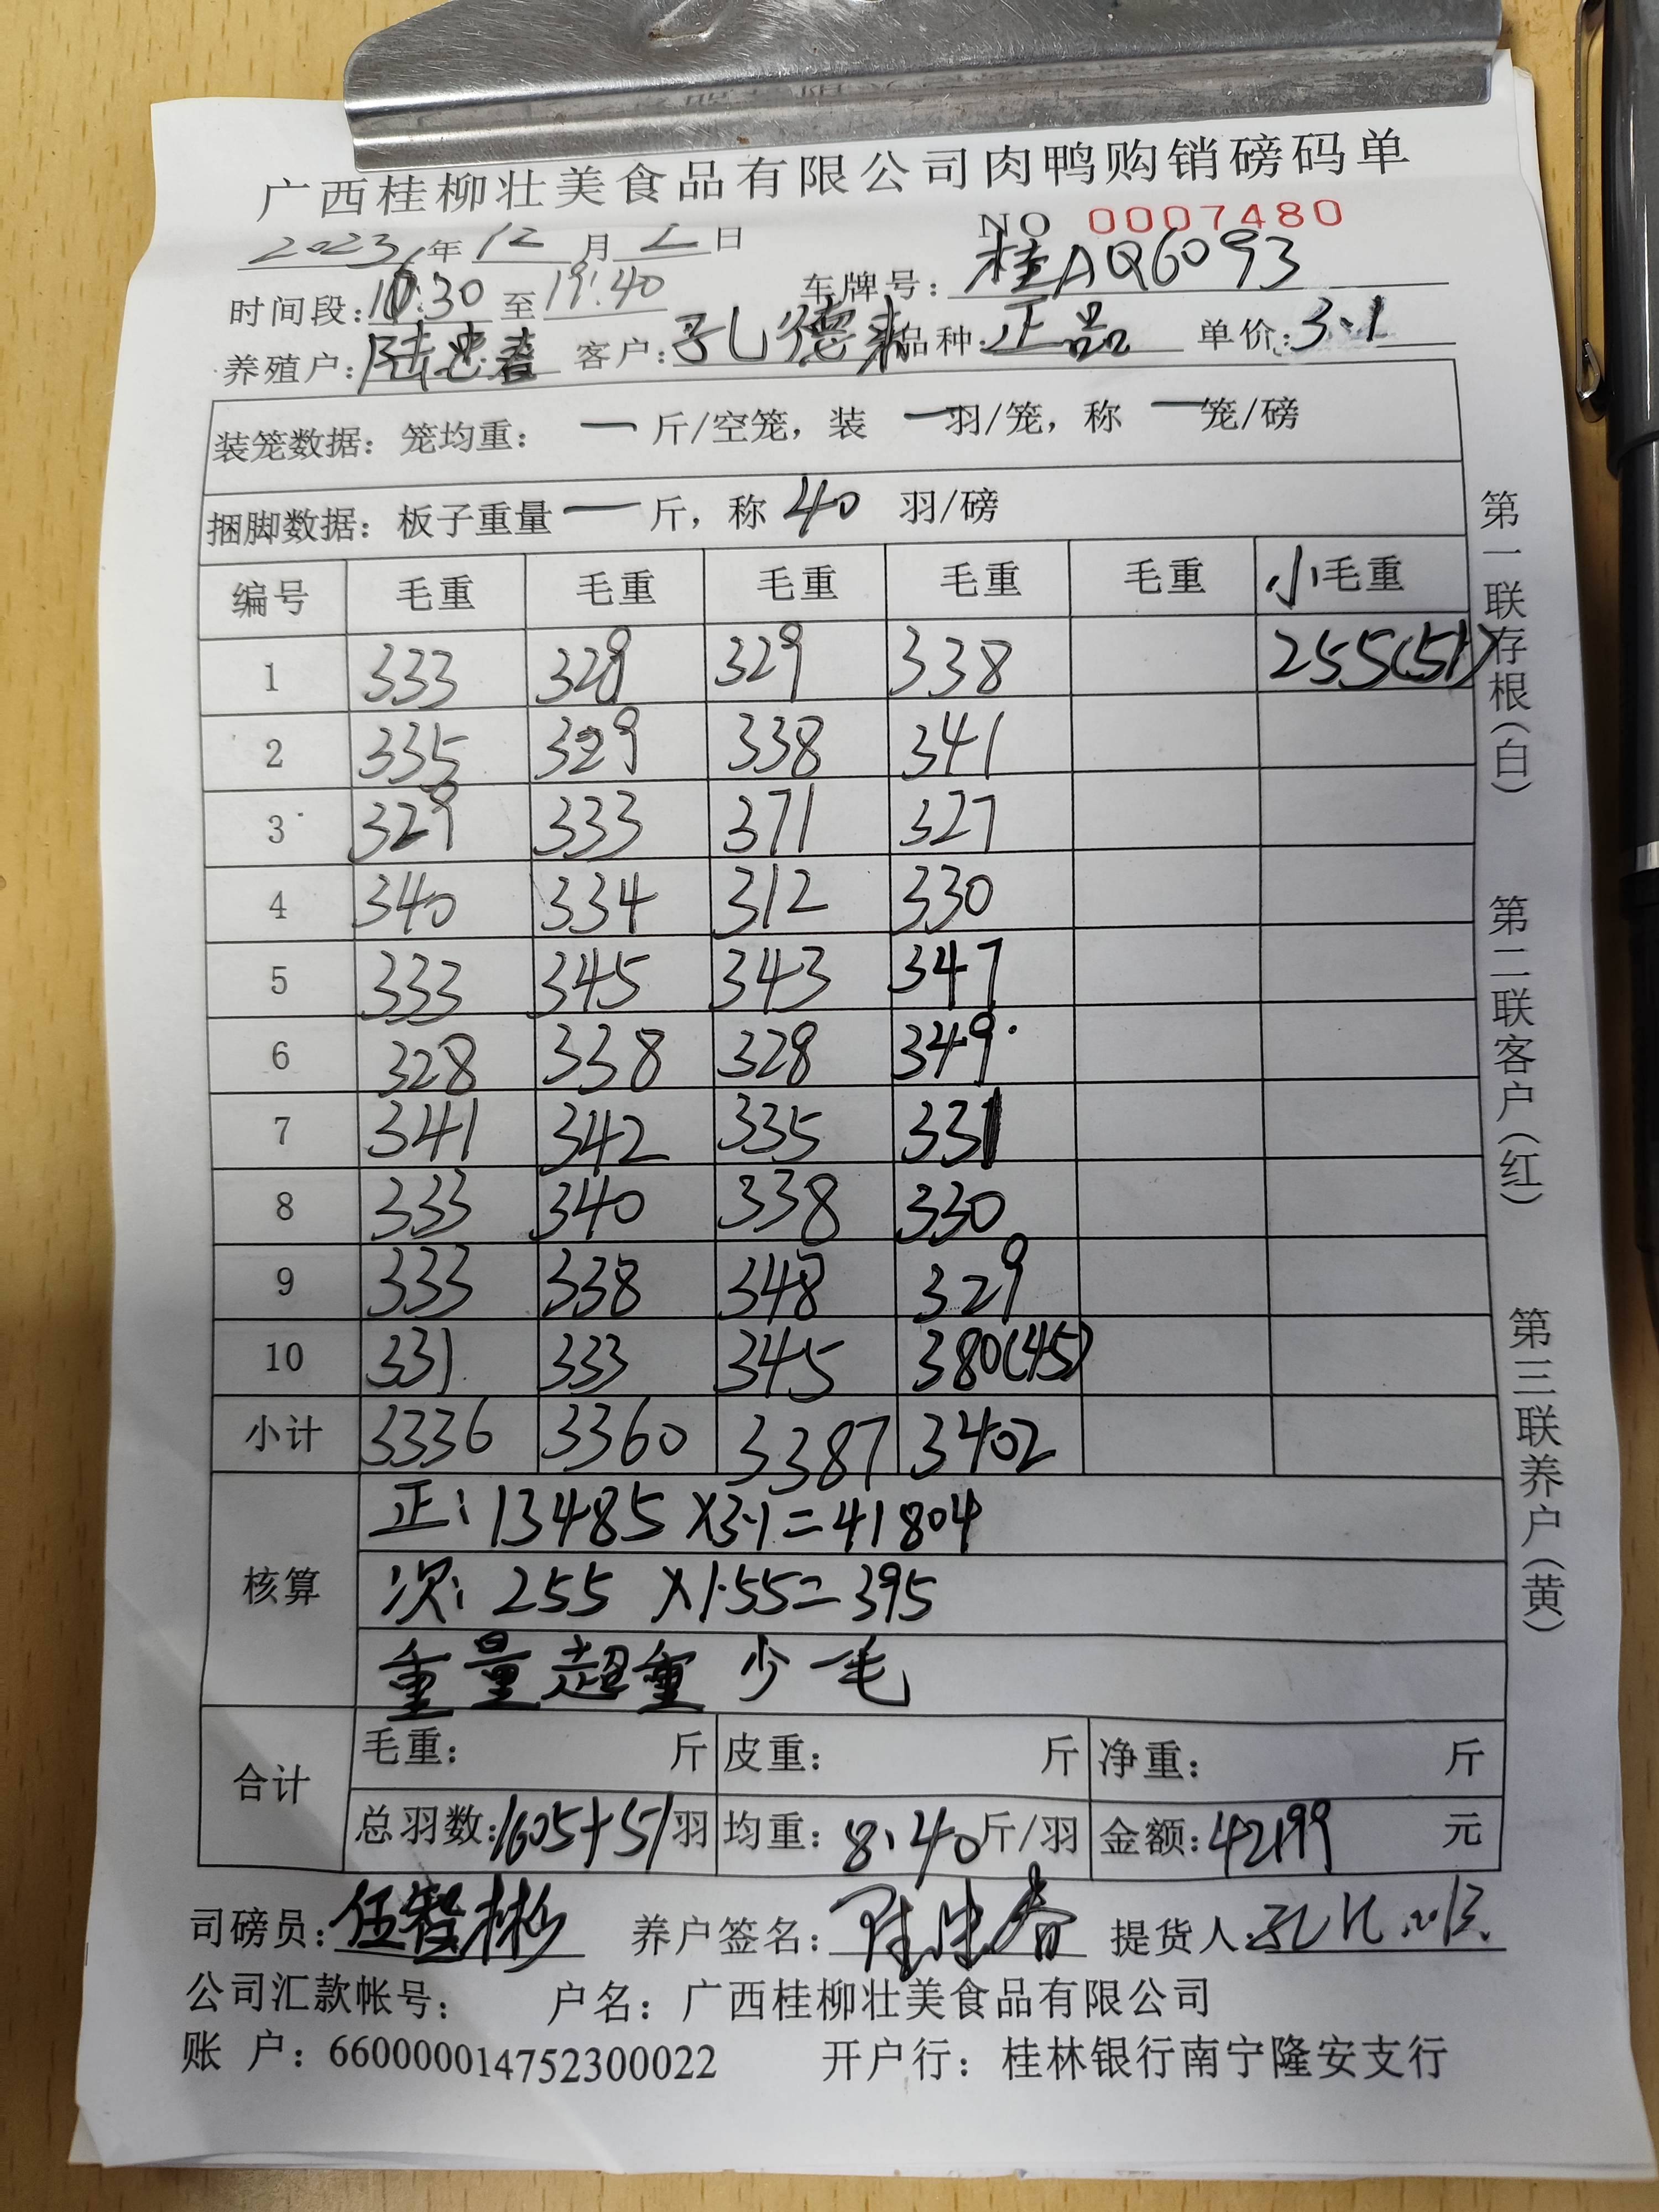 广西桂柳壮美食品有限公司肉鸭购销磅码单
NO 0007480
2023年12月2日
时间段:10:30至19:40 车牌号:桂AQ6093
养殖户:陆忠春 客户:孔德来 品种:正品 单价:3.1
装笼数据:笼均重: 一 斤/空笼,装 一羽/笼,称 一笼/磅
捆脚数据:板子重量 一 斤,称 40 羽/磅
编号 毛重 毛重 毛重 毛重 毛重 小毛重
1 333 329 329 338 255(51)
2 335 329 338 341
3 329 333 371 327
4 340 334 312 330
5 333 345 343 347
6 328 338 328 349
7 341 342 335 331
8 333 340 338 330
9 333 338 348 329
10 331 333 345 380(45)
小计 3336 3360 3387 3402
核算 正:13485×3.1=41804
次:255×1.55=395
重量超重 少一毛
合计 毛重: 斤 皮重: 斤 净重: 斤
总羽数:1605+51羽 均重:8.40斤/羽 金额:42199 元
司磅员: 养户签名: 提货人:
公司汇款帐号: 户名:广西桂柳壮美食品有限公司
账 户:660000014752300022 开户行:桂林银行南宁隆安支行
第一联存根(白) 第二联客户(红) 第三联养户(黄)